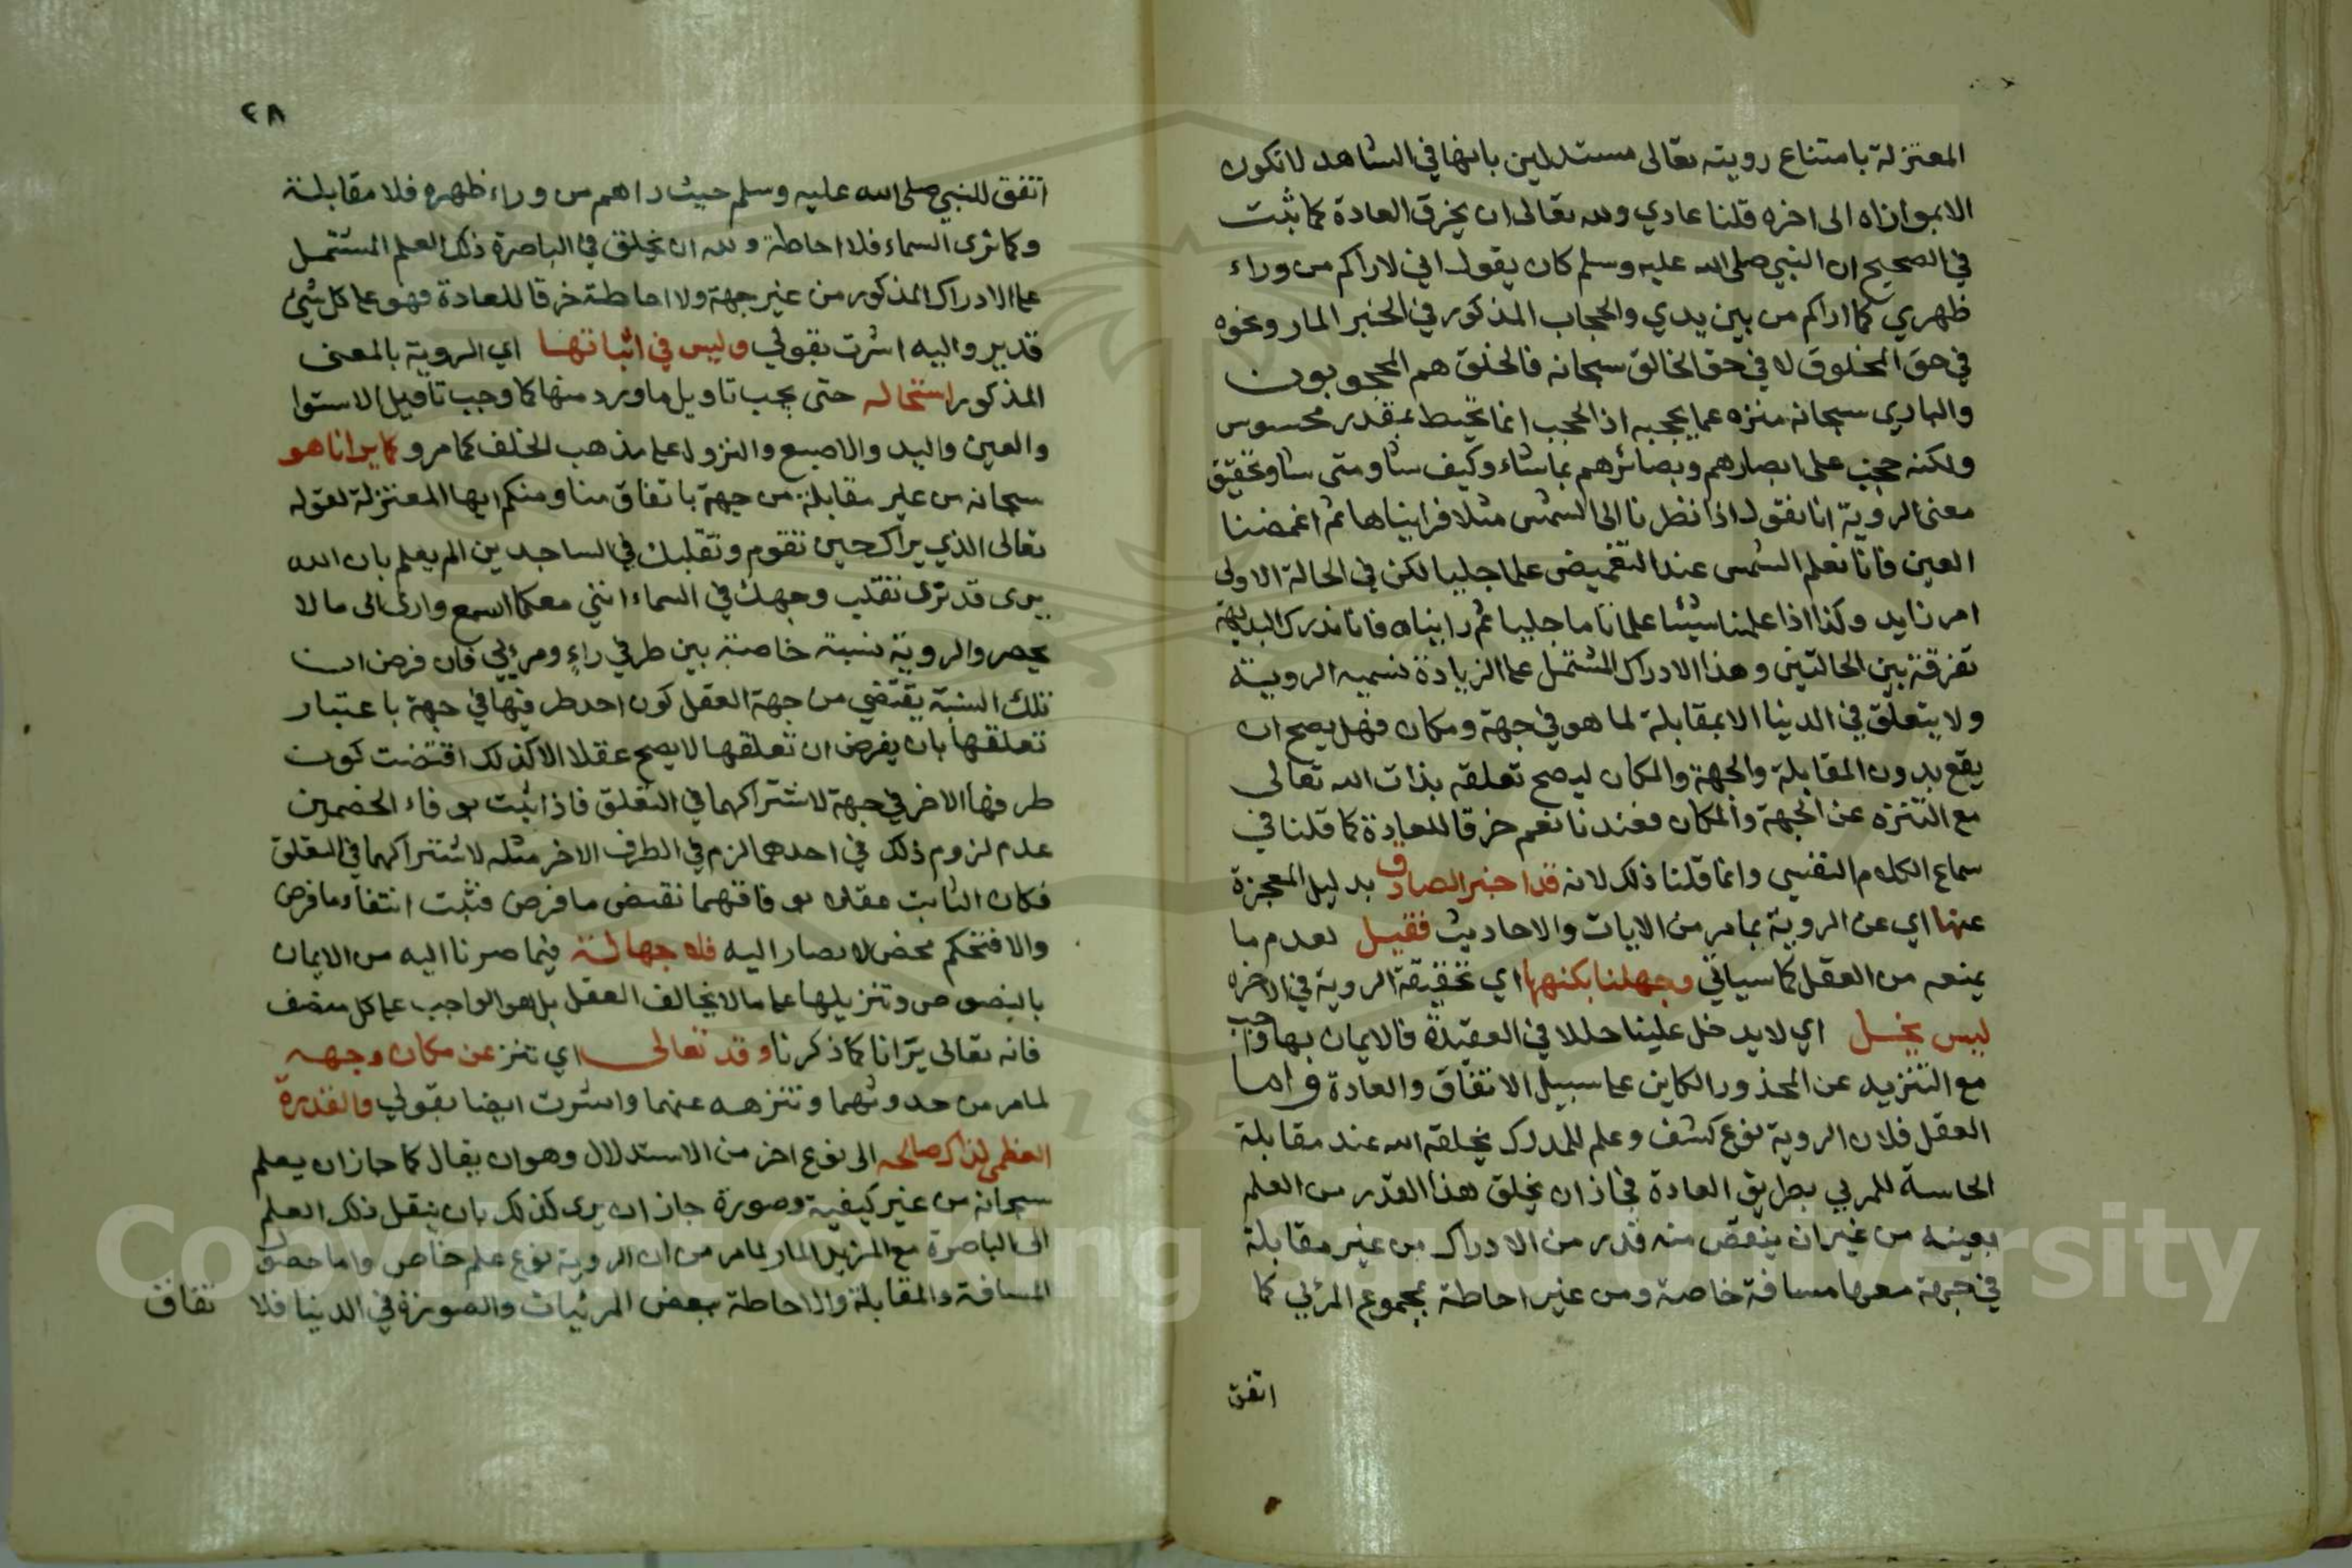 المعتزلة بامتناع رويته تعالى مستدلين بانها في الشاهد لا تكون
الابموازاه الى اخره قلنا عادي ولله تعالى ان يخرق العادة كما ثبت
في الصحيح ان النبي صلى الله عليه وسلم كان يقول اني لاراكم من وراء
ظهري كما اراكم من بين يدي والحجاب المذكور في الخبر المار ونحوه
في حق المخلوق لا في حق الخالق سبحانه فالخلق هم المحجوبون
والباري سبحانه منزه عما يحجبه اذ الحجب انما تحيط بمقدر محسوس
ولكنه حجب على ابصارهم وبصائرهم بما شاء وكيف شا ومتى شا وتحقيق
معنى الروية انا نقول اذا نظرنا الى الشمس مثلا فرايناها ثم اغمضنا
العين فانا نعلم الشمس عند التغميض علما جليا لكن في الحالة الاولى
امر زايد وكذا اذا علمنا شيئا علما تاما جليا ثم رايناه فانا ندرك بالبديهة
تفرقة بين الحالتين وهذا الادراك المشتمل على الزيادة نسميه الروية
ولا يتعلق في الدنيا الا بمقابلة لما هو في جهة ومكان فهل يصح ان
يقع بدون المقابلة والجهة والمكان ليصح تعلقه بذات الله تعالى
مع التنزه عن الجهة والمكان فعندنا نعم خرقا للعادة كما قلنا في
سماع الكلام النفسي وانما قلنا ذلك لانه قد اخبر الصادق بدليل المعجزة
عنها اي عن الروية بما مر من الايات والاحاديث فقيل لعدم ما
يمنعه من العقل كما سياتي وجهلنا بكنهها اي تحقيقة الروية في الاخره
ليس يخل اي لا يدخل علينا خللا في العقيدة فالايمان بها واجب
مع التنزيه عن المحذور الكاين على سبيل الاتفاق والعادة واما
العقل فلان الروية نوع كشف وعلم للمدرك يخلقه الله عند مقابلة
الحاسة للمرئي بطريق العادة فجاز ان يخلق هذا القدر من العلم
بعينه من غير ان ينقص منه قدر من الادراك من غير مقابلة
في جهة معها مسافة خاصة ومن غير احاطة بمجموع المرئي كما
اتفق
٢٨
اتفق للنبي صلى الله عليه وسلم حيث راهم من وراء ظهره فلا مقابلة
وكما ترى السماء فلا احاطة ولله ان يخلق في الباصرة ذلك العلم المشتمل
على الادراك المذكور من غير جهة ولا احاطة خرقا للعادة فهو على كل شيئ
قدير واليه اشرت بقولي وليس في اثباتها اي الروية بالمعنى
المذكور استحاله حتى يجب تاويل ما ورد منها كما وجب تاويل الاستوا
والعين واليد والاصبع والنزول على مذهب الخلف كما مر وكما يرانا هو
سبحانه من غير مقابلة من جهة باتفاق منا ومنكم ايها المعتزلة لقوله
تعالى الذي يراك حين تقوم وتقلبك في الساجدين الم يعلم بان الله
يرى قد نرى تقلب وجهك في السماء انني معكما اسمع وارى الى ما لا
يحصر والروية نسبة خاصة بين طرفي راءٍ ومرئي فان فرض ان
تلك النسبة يقتضي من جهة العقل كون احد طرفيها في جهة باعتبار
تعلقها بان يفرض ان تعلقها لا يصح عقلا الا كذلك اقتضت كون
طرفها الاخر في جهة لاشتراكهما في التعلق فاذا ثبت بوفاء الخصمين
عدم لزوم ذلك في احدهما لزم في الطرف الاخر مثله لاشتراكهما في التعلق
فكان الثابت عقلا بوفاقهما نقيض ما فرض فثبت انتفاء ما فرض
والا فتحكم محض لا يصار اليه فلا جهالة فيما صرنا اليه من الايمان
بالنصوص وتنزيلها على ما لا يخالف العقل بل هو الواجب على كل منصف
فانه تعالى يرانا كما ذكرنا وقد تعالى اي تنز عن مكان وجهه
لما مر من حدوثهما وتنزهه عنهما واشرت ايضا بقولي والقدرة
العظمى لذاك صالحه الى نوع اخر من الاستدلال وهو ان يقال كما جاز ان يعلم
سبحانه من غير كيفية وصورة جاز ان يرى كذلك بان ينقل ذلك العلم
الى الباصرة مع المزيل المار لما مر من ان الروية نوع علم خاص واما حصول
المسافة والمقابلة والاحاطة ببعض المرئيات والصورة في الدنيا فلا
تفاق
Copyright © King Saud University
1957